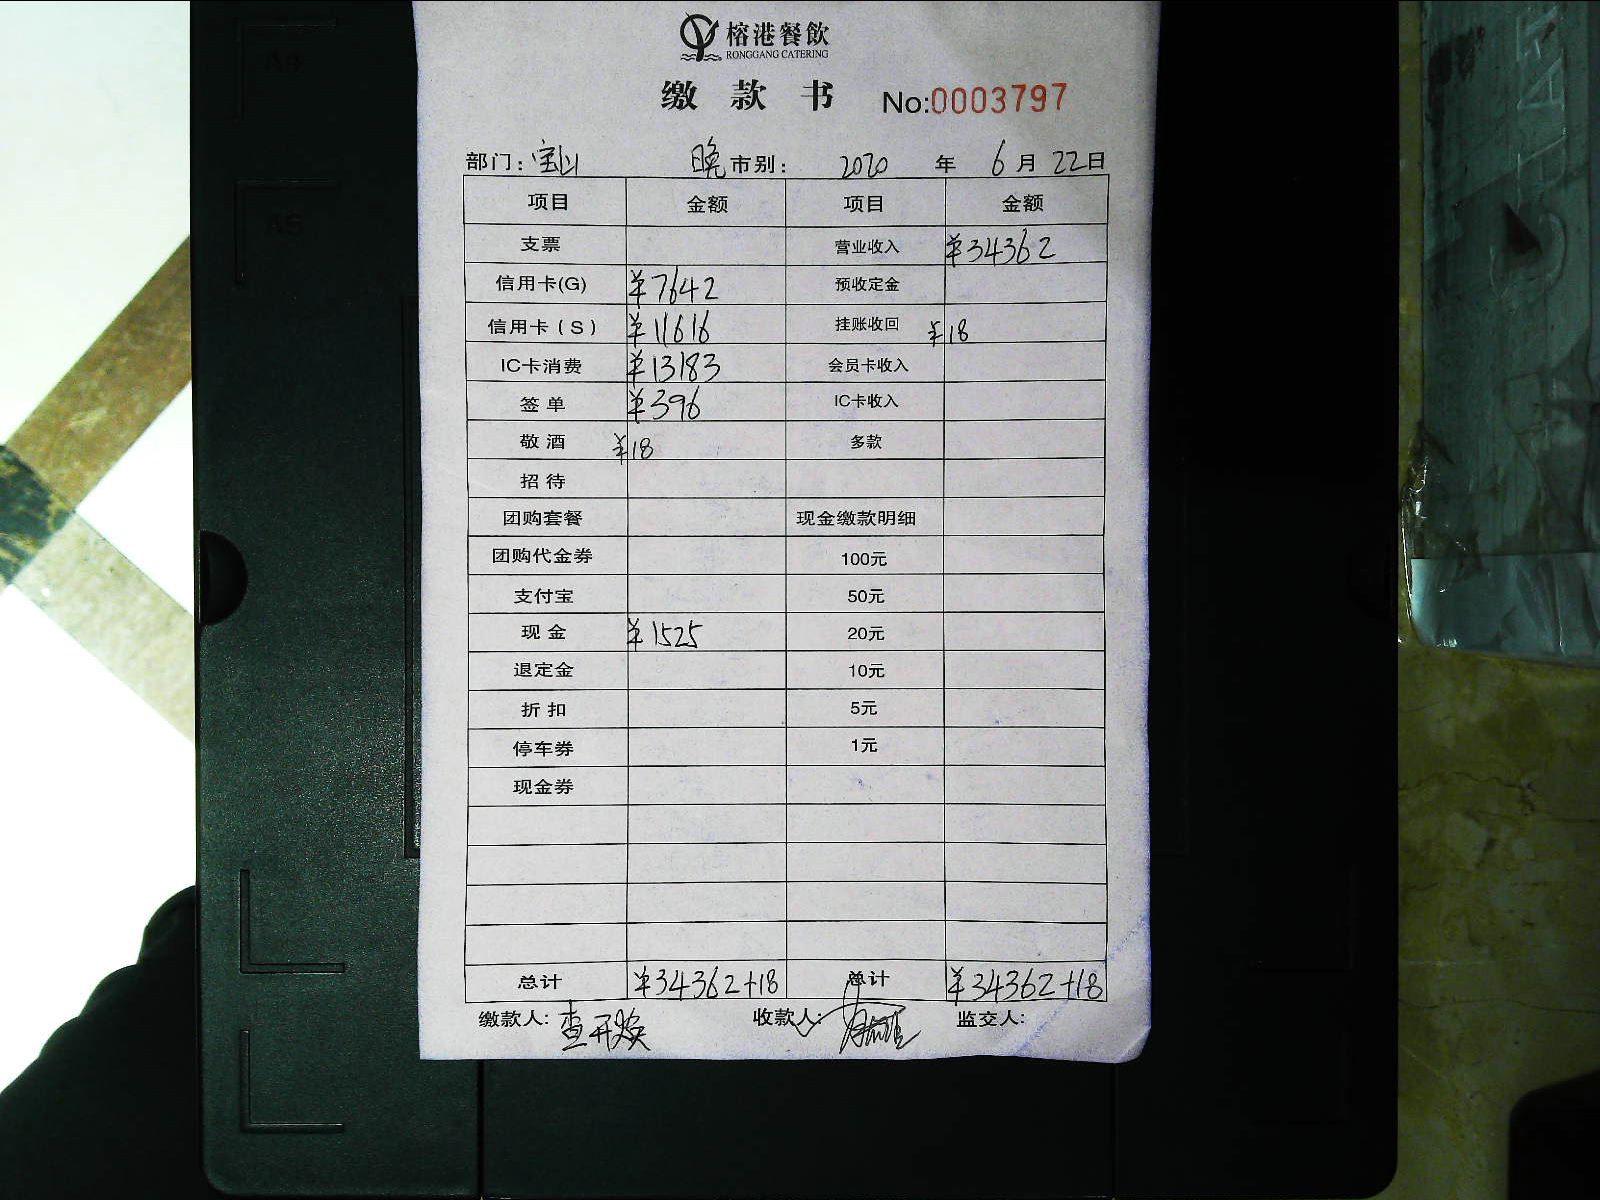 榕港餐飲
RONGGANG CATERING
缴款书 No:0003797
部门: 宝山 晚市别: 2020 年 6 月 22日
项目 金额 项目 金额
支票 营业收入 ¥34362
信用卡(G) ¥7642 预收定金
信用卡(S) ¥11616 挂账收回 ¥18
IC卡消费 ¥13183 会员卡收入
签单 ¥396 IC卡收入
敬酒 ¥18 多款
招待
团购套餐 现金缴款明细
团购代金券 100元
支付宝 50元
现金 ¥1525 20元
退定金 10元
折扣 5元
停车券 1元
现金券
总计 ¥34362+18 总计 ¥34362+18
缴款人: 查开焕 收款人: 监交人: